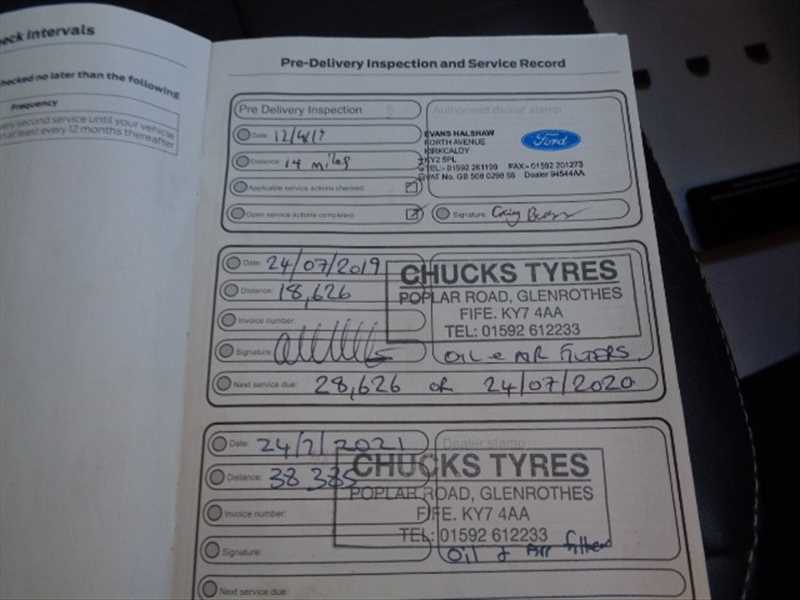 eck Intervals
hecked no later than the following
Frequency
ery second service until your vehicle
at least every 12 months thereafter
Pre-Delivery Inspection and Service Record
Pre Delivery Inspection
Authorised dealer stamp
Date: 12/4/17
EVANS HALSHAW
NORTH AVENUE
KIRKCALDY
KY2 5PL
Ford
Distance: 14 miles
TEL:- 01592 261199 FAX:- 01592 201273
VAT No. GB 508 0298 56 Dealer 94544AA
Applicable service actions checked:
Open service actions completed:
Signature: Craig
Date: 24/07/2019
CHUCKS TYRES
Distance: 18,626
POPLAR ROAD, GLENROTHES
FIFE. KY7 4AA
Invoice number:
TEL: 01592 612233
Signature:
OIL & AIR FILTERS.
Next service due: 28,626 or 24/07/2020
Date: 24/2/2021
Dealer stamp
CHUCKS TYRES
Distance: 38 385
POPLAR ROAD, GLENROTHES
Invoice number:
FIFE. KY7 4AA
TEL: 01592 612233
Signature:
Oil & Air filters
Next service due: